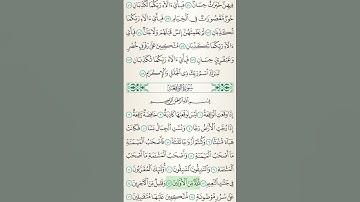 فِيهِنَّ خَيْرَٰتٌ حِسَانٌ فَبِأَيِّ ءَالَآءِ رَبِّكُمَا تُكَذِّبَانِ
حُورٌ مَّقْصُورَٰتٌ فِي ٱلْخِيَامِ فَبِأَيِّ ءَالَآءِ رَبِّكُمَا
تُكَذِّبَانِ لَمْ يَطْمِثْهُنَّ إِنسٌ قَبْلَهُمْ وَلَا جَآنٌّ فَبِأَيِّ
ءَالَآءِ رَبِّكُمَا تُكَذِّبَانِ مُتَّكِـِٔينَ عَلَىٰ رَفْرَفٍ خُضْرٍ
وَعَبْقَرِيٍّ حِسَانٍ فَبِأَيِّ ءَالَآءِ رَبِّكُمَا تُكَذِّبَانِ
تَبَٰرَكَ ٱسْمُ رَبِّكَ ذِي ٱلْجَلَٰلِ وَٱلْإِكْرَامِ
سُورَةُ الوَاقِعَةِ
بِسْمِ ٱللَّهِ ٱلرَّحْمَٰنِ ٱلرَّحِيمِ
إِذَا وَقَعَتِ ٱلْوَاقِعَةُ لَيْسَ لِوَقْعَتِهَا كَاذِبَةٌ خَافِضَةٌ رَّافِعَةٌ
إِذَا رُجَّتِ ٱلْأَرْضُ رَجًّا وَبُسَّتِ ٱلْجِبَالُ بَسًّا فَكَانَتْ
هَبَآءً مُّنۢبَثًّا وَكُنتُمْ أَزْوَٰجًا ثَلَٰثَةً فَأَصْحَٰبُ ٱلْمَيْمَنَةِ
مَآ أَصْحَٰبُ ٱلْمَيْمَنَةِ وَأَصْحَٰبُ ٱلْمَشْـَٔمَةِ مَآ أَصْحَٰبُ
ٱلْمَشْـَٔمَةِ وَٱلسَّٰبِقُونَ ٱلسَّٰبِقُونَ أُو۟لَٰٓئِكَ ٱلْمُقَرَّبُونَ
فِي جَنَّٰتِ ٱلنَّعِيمِ ثُلَّةٌ مِّنَ ٱلْأَوَّلِينَ وَقَلِيلٌ مِّنَ ٱلْءَاخِرِينَ
عَلَىٰ سُرُرٍ مَّوْضُونَةٍ مُّتَّكِـِٔينَ عَلَيْهَا مُتَقَٰبِلِينَ